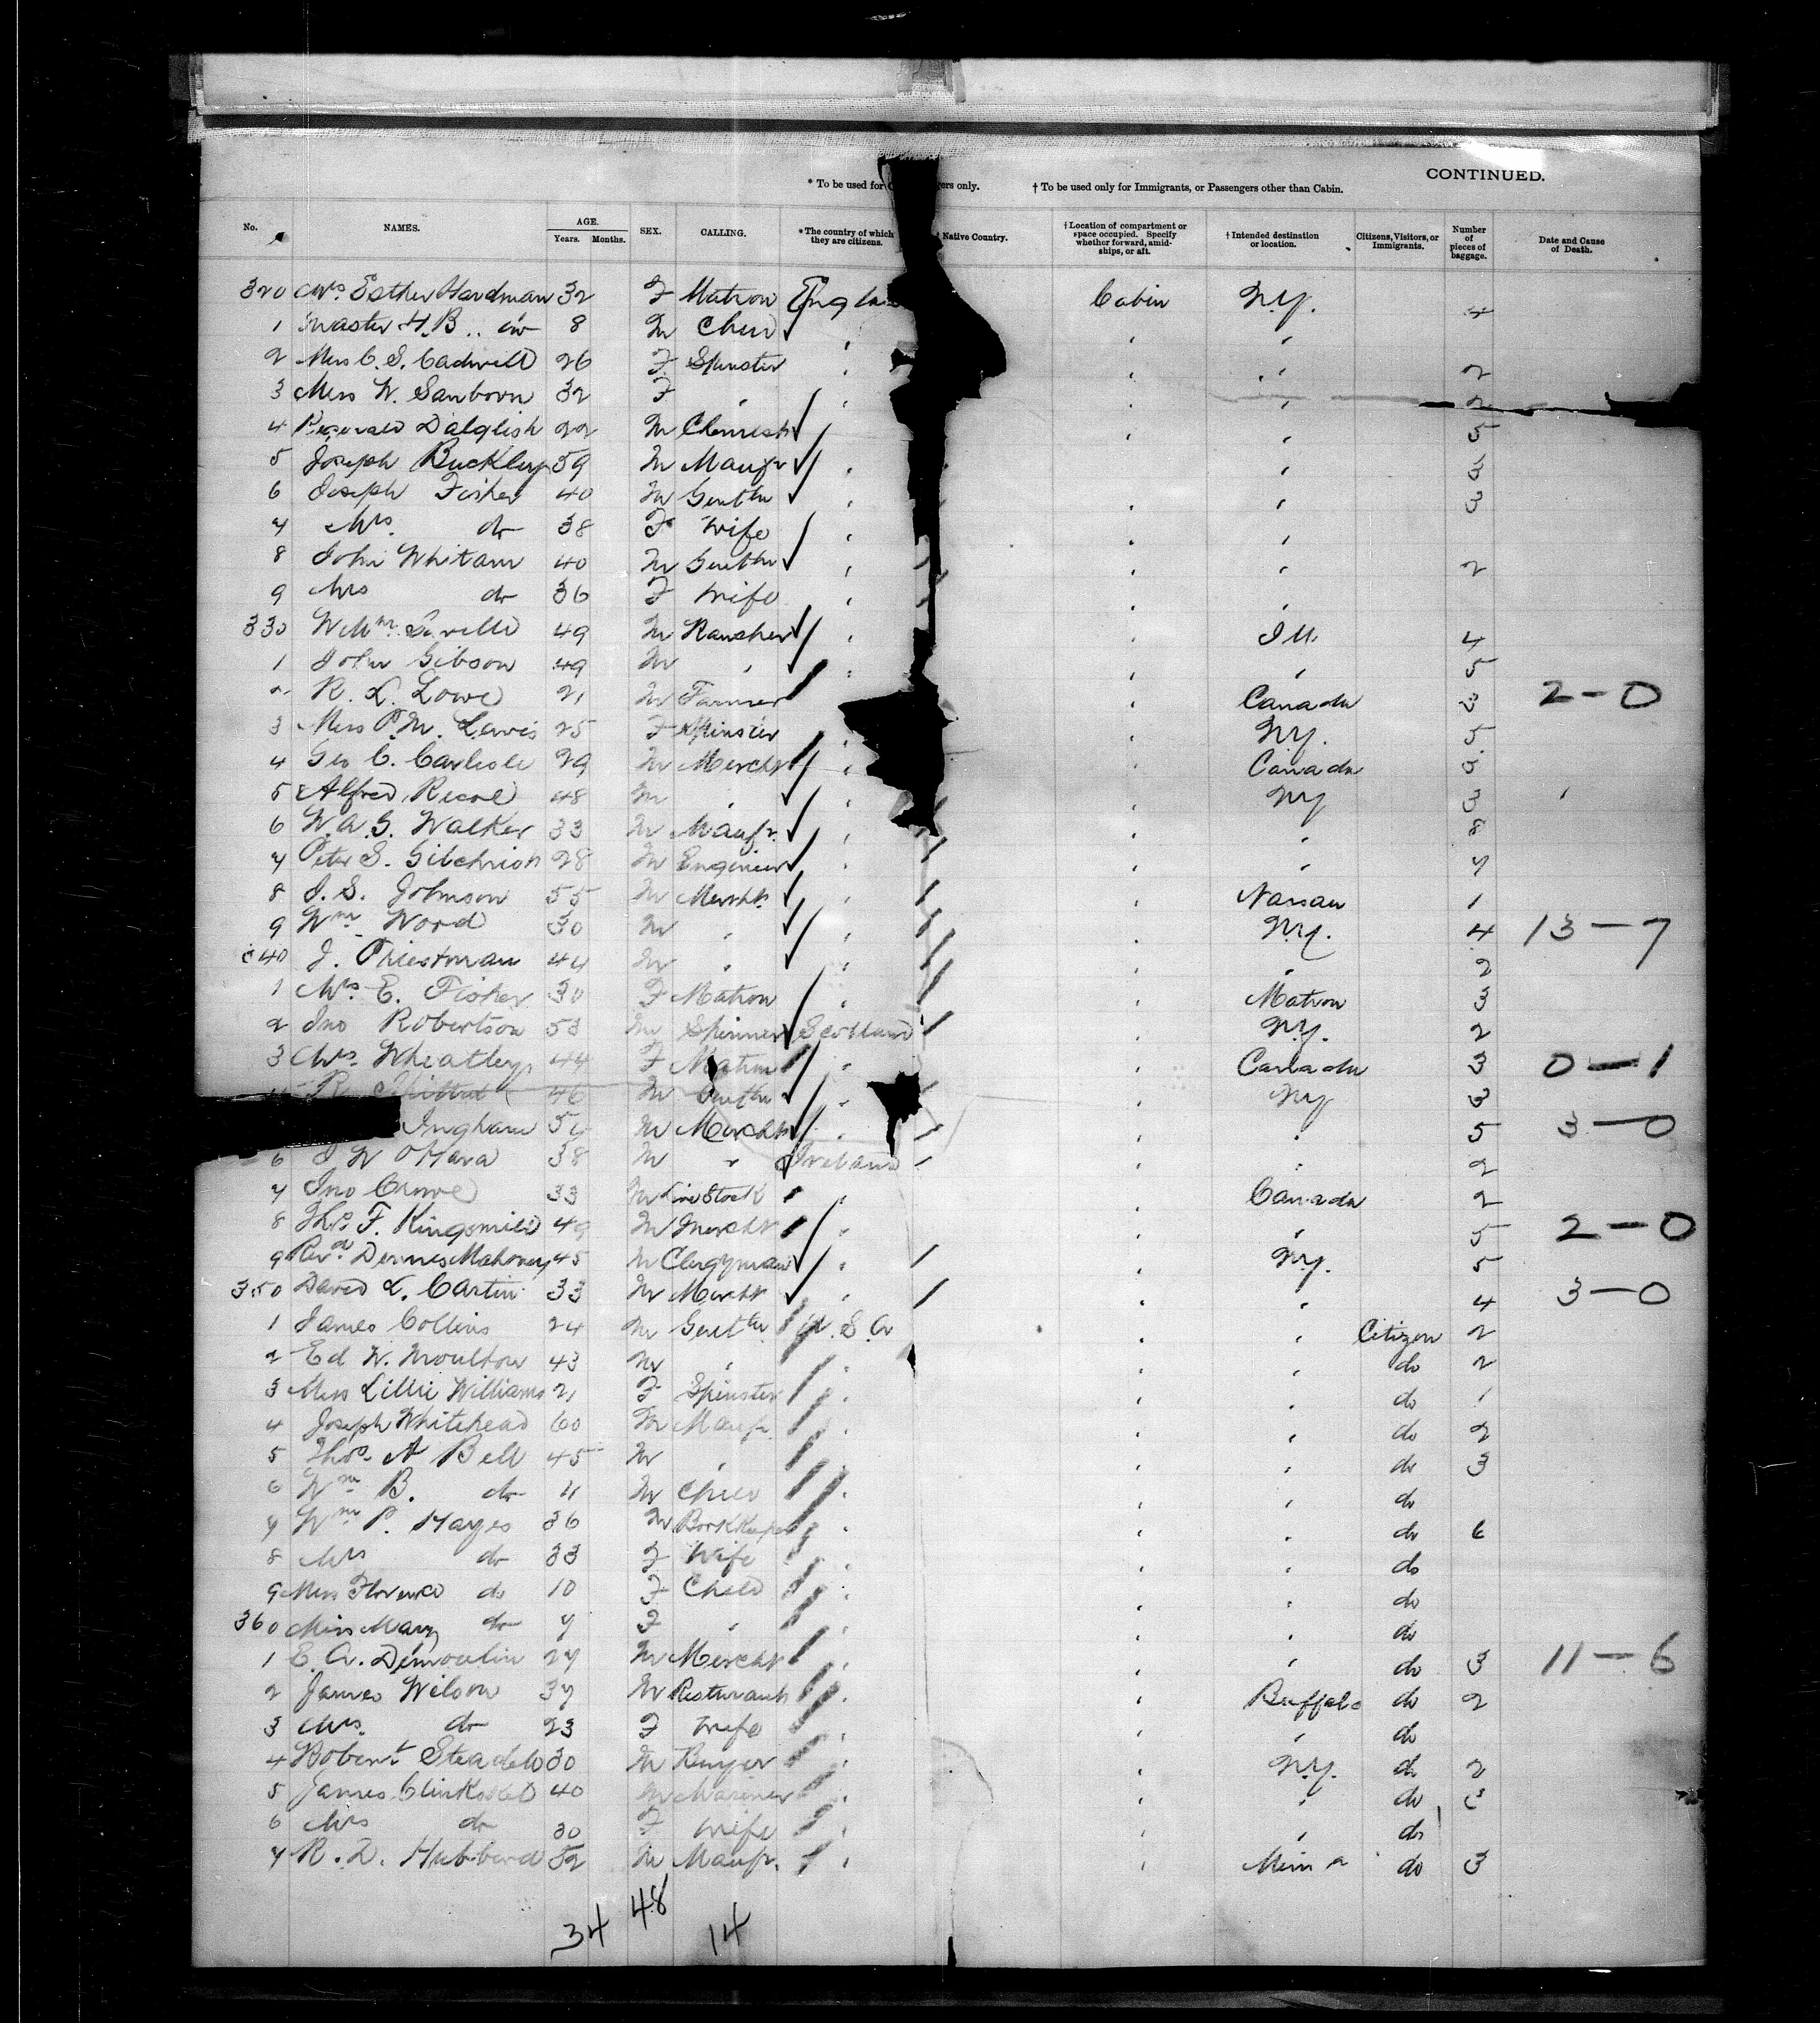 CONTINUED.
* To be used for C gers only. † To be used only for Immigrants, or Passengers other than Cabin.
No. NAMES. AGE. Years. Months. SEX. CALLING. * The country of which they are citizens. Native Country. † Location of compartment or space occupied. Specify whether forward, amidships, or aft. † Intended destination or location. Citizens, Visitors, or Immigrants. Number of pieces of baggage. Date and Cause of Death.
320 Mrs. Esther Hardman 32 F Matron Engla Cabin N.Y. 4
1 Master H. B. " do 8 M Child "
2 Miss C. S. Cadwell 26 F Spinster " " " 2
3 Miss W. Sanborn 32 F " " " " 2
4 Reginald Dalglish 22 M Chemist " " 5
5 Joseph Buckley 59 M Manfr " " 3
6 Joseph Fisher 40 M Gentln " " " 3
7 Mrs. do 38 F Wife " " "
8 John Whitam 40 M Gentln " " " 2
9 Mrs do 36 F Wife " " "
330 49 M Rancher " " Ill. 4
1 John Gibson 49 M " " " " 5
2 R. L. Lowe 21 M Farmer " Canada 3 2-0
3 Miss P. M. Lewis 25 F Spinster " " N.Y. 5
4 Geo C. Carlisle 29 M Mercht " " Canada
5 Alfred 48 M " " " N.Y 3
6 W. A. G. Walker 33 M Manfr. " " " 8
7 Peter S. Gilchrist 28 M Engineer " " " 7
8 J. S. Johnson 55 M Mercht. " " Nassau 1
9 Wm Word 30 M " " " N.Y. 4 13-7
340 J. Priestman 44 M " " " " 2
1 Mrs. E. Fisher 30 F Matron " " Matron 3
2 Jno Robertson 53 M Spinner Scotland " N.Y. 2
3 Mrs. Wheatley 44 F Matron " " Canada 3 0-1
R. 46 M Gentln " " N.Y 3
Ingham M Mercht " " " 5 3-0
6 J W O'Hara 38 M " Ireland " " 2
7 Jno Crowe 33 M Live Stock " " Canada 2
8 Thos. F. Kingsmill 49 M Mercht " " " 5 2-0
9 Revd Dennis Mahoney 45 M Clergyman " " N.Y. 5
350 David L. Cartin 33 M Mercht " " " 4 3-0
1 James Collins 24 M Gentln U. S. A " " Citizen 2
2 Ed W. Moulton 43 M " " " " do 2
3 Miss Lillie Williams 21 F Spinster " " " do 1
4 Joseph Whitehead 60 M Manfr. " " " do 2
5 Thos. A Bell 45 M " " " " do 3
6 Wm B. do 11 M Child " " " do
7 Wm P. Hayes 36 M Bookkeeper " " " do 6
8 Mrs do 33 F Wife " " " do
9 Miss Florence do 10 F Child " " " do
360 Miss Mary do 7 F " " " " do
1 E. A. Demoulin 27 M Mercht " " " do 3 11-6
2 James Wilson 37 M Resturant " " Buffalo do 2
3 Mrs. do 23 F Wife " " " do
4 Robert 30 M Buyer " " N.Y. do 2
5 James 40 M Mariner " " " do
6 Mrs do 30 F Wife " " " do
7 R. D. Hubbard 52 M Manfr. " " Minn do 3
34 48 14